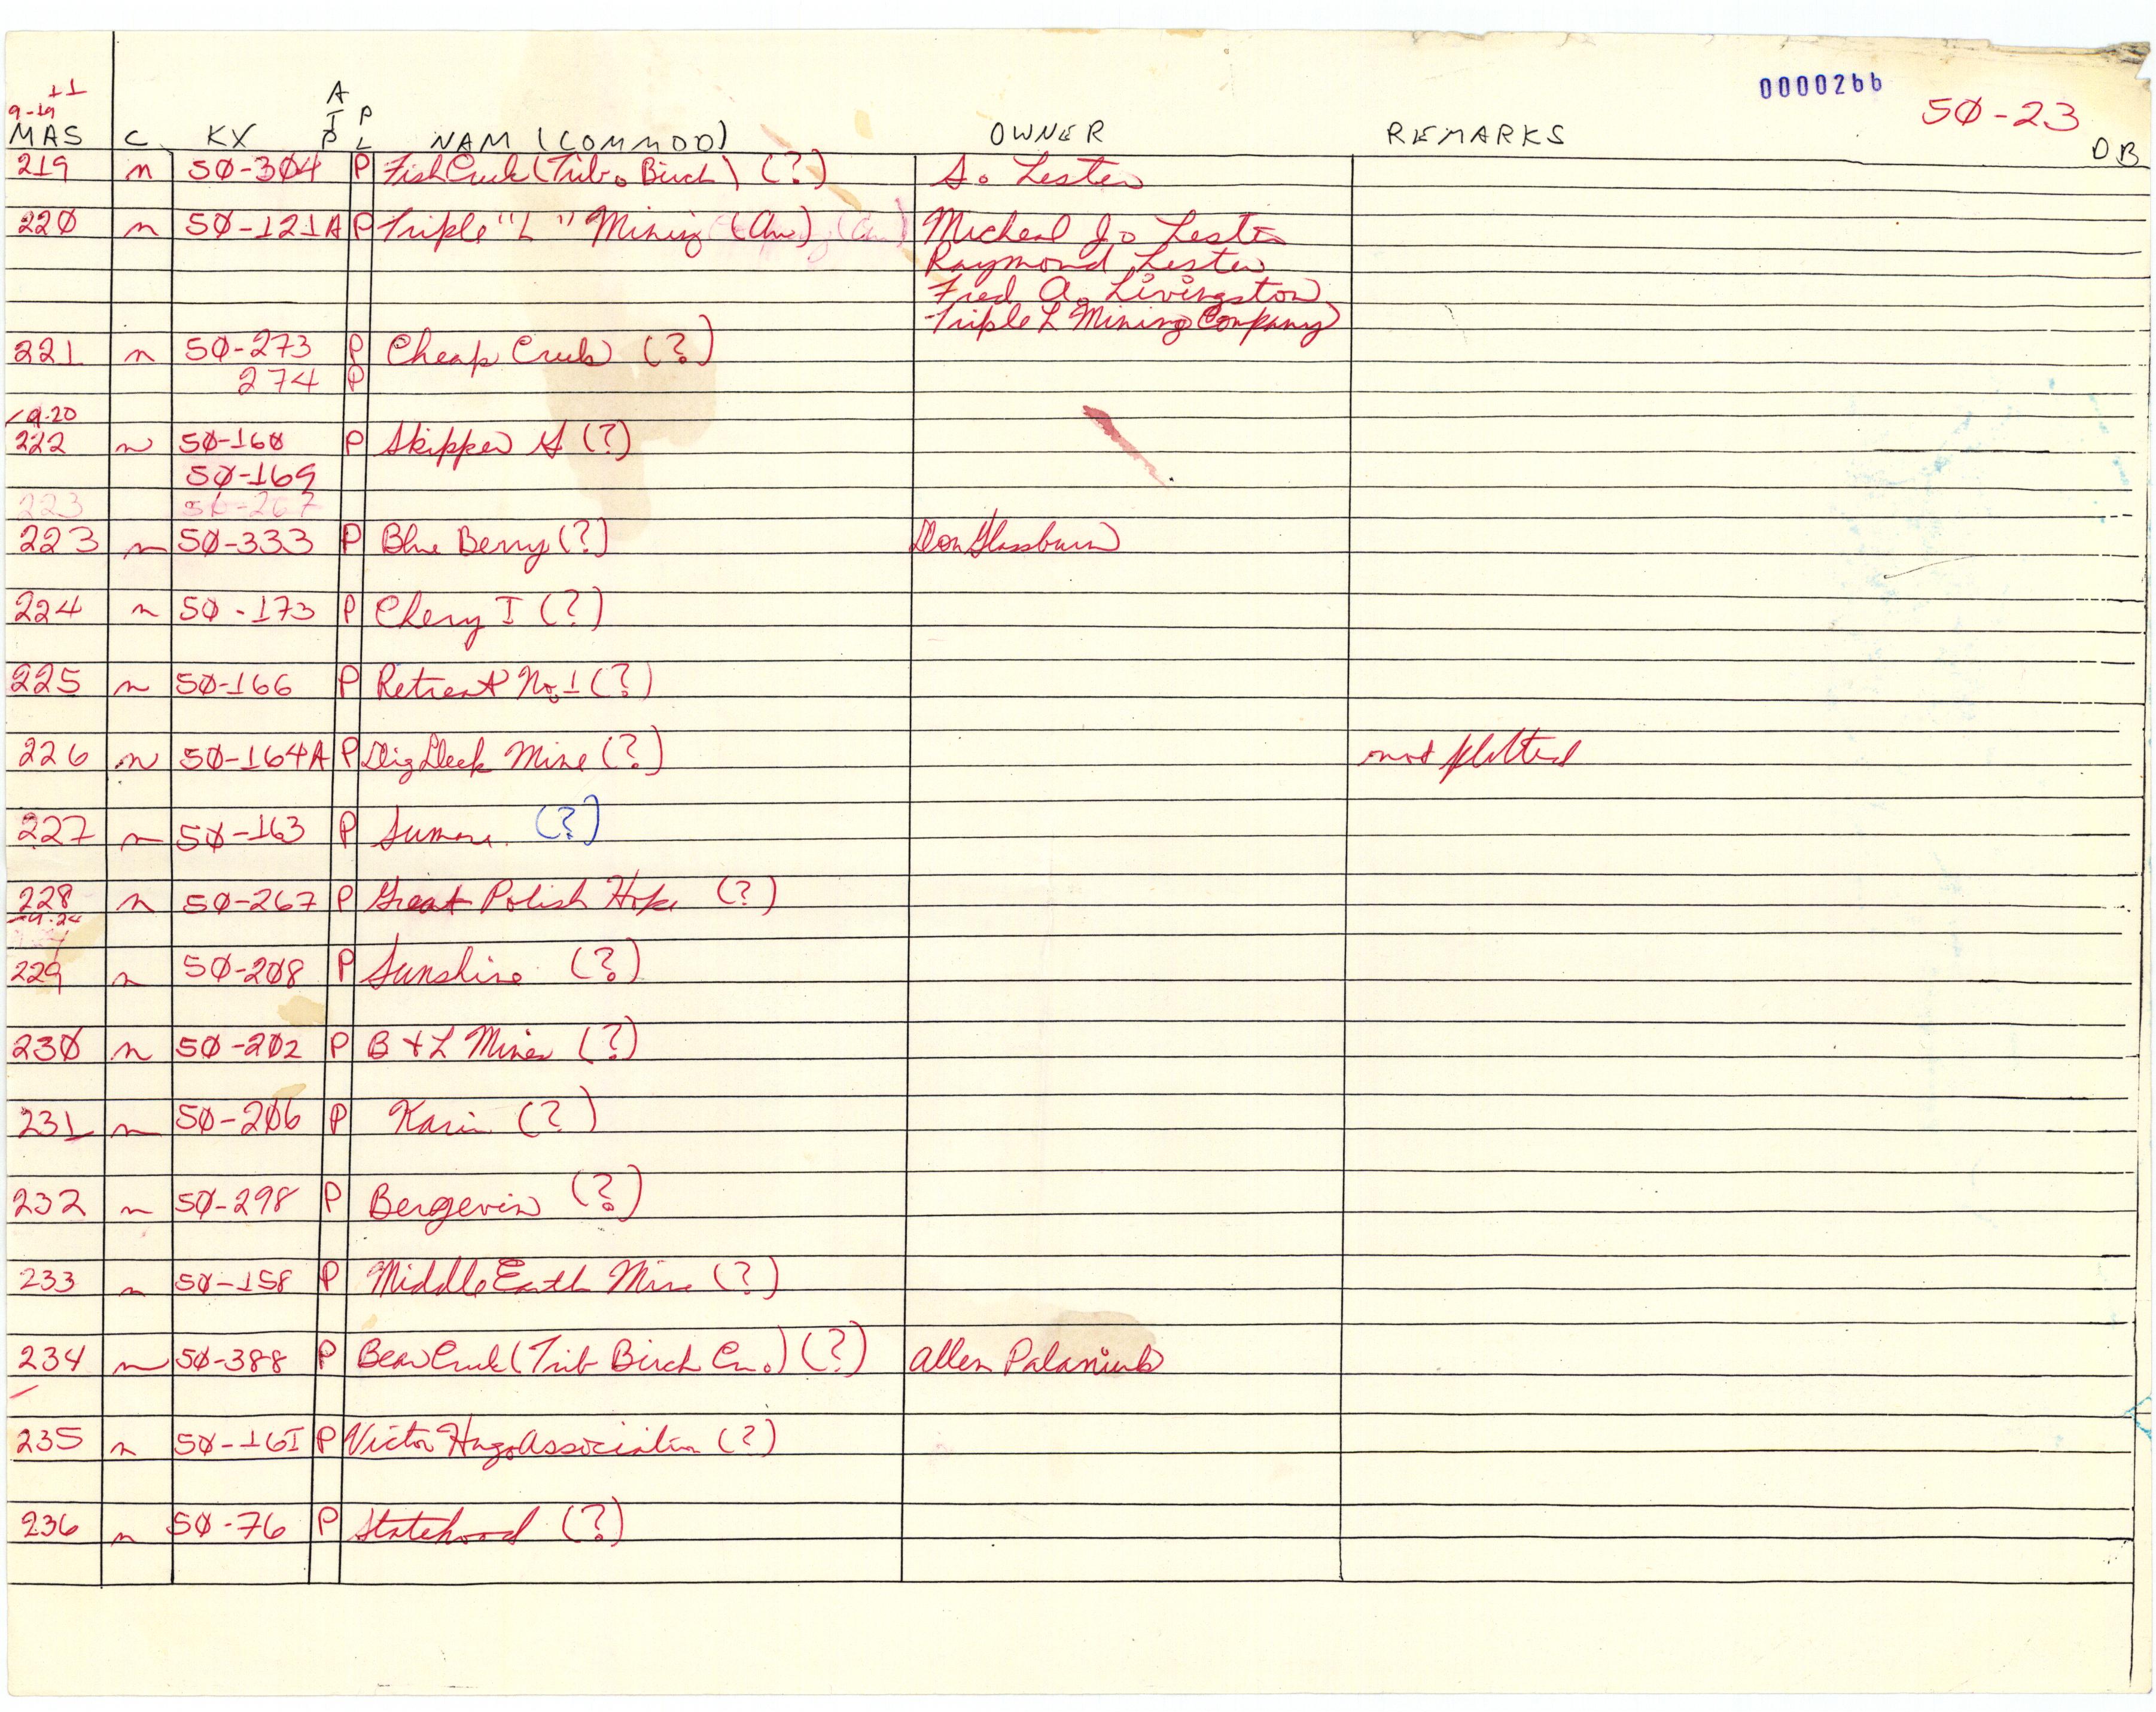 0000266
50-23
11
9-19
A
I P
MAS C KX P L NAM (COMMOD) OWNER REMARKS DB
219 n 5Ø-3Ø4 P Fish Creek (Trib. Birch) (?) S. Lester
22Ø n 5Ø-121A P Triple "L" Mining (Au) (Au) Micheal J. Lester
Raymond Lester
Fred A. Livingston
Triple L Mining Company
221 n 5Ø-273 P Cheap Creek (?)
274 P
9-20
222 n 5Ø-168 P Skipper (?)
5Ø-169
223 50-267
223 n 5Ø-333 P Blue Berry (?) Don Glassburn
224 n 5Ø-173 P Chery I (?)
225 n 5Ø-166 P Retreat No. 1 (?)
226 n 5Ø-164A P Dig Deek Mine (?) not plotted
227 n 5Ø-163 P (?)
228 n 5Ø-267 P Great Polish Hope (?)
9-24
229 n 5Ø-2Ø8 P Sunshine (?)
23Ø n 5Ø-2Ø2 P B + L Mines (?)
231 n 5Ø-2Ø6 P Karin (?)
232 n 5Ø-298 P Bergevin (?)
233 n 5Ø-158 P Middle Earth Mine (?)
234 n 5Ø-388 P Bear Creek (Trib Birch Cr.) (?) Allen Palaniuk
235 n 5Ø-161 P Victor Hugo Association (?)
236 n 5Ø-76 P Statehood (?)